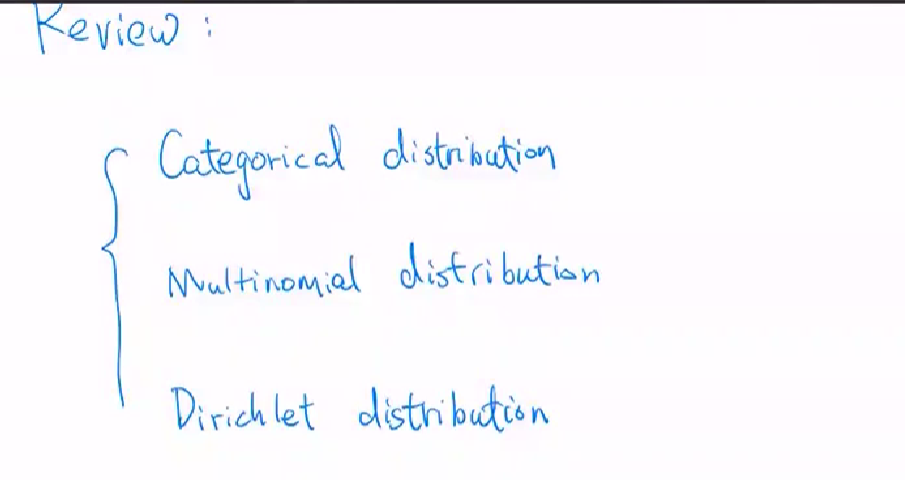 Review :
Categorical distribution
Multinomial distribution
Dirichlet distribution